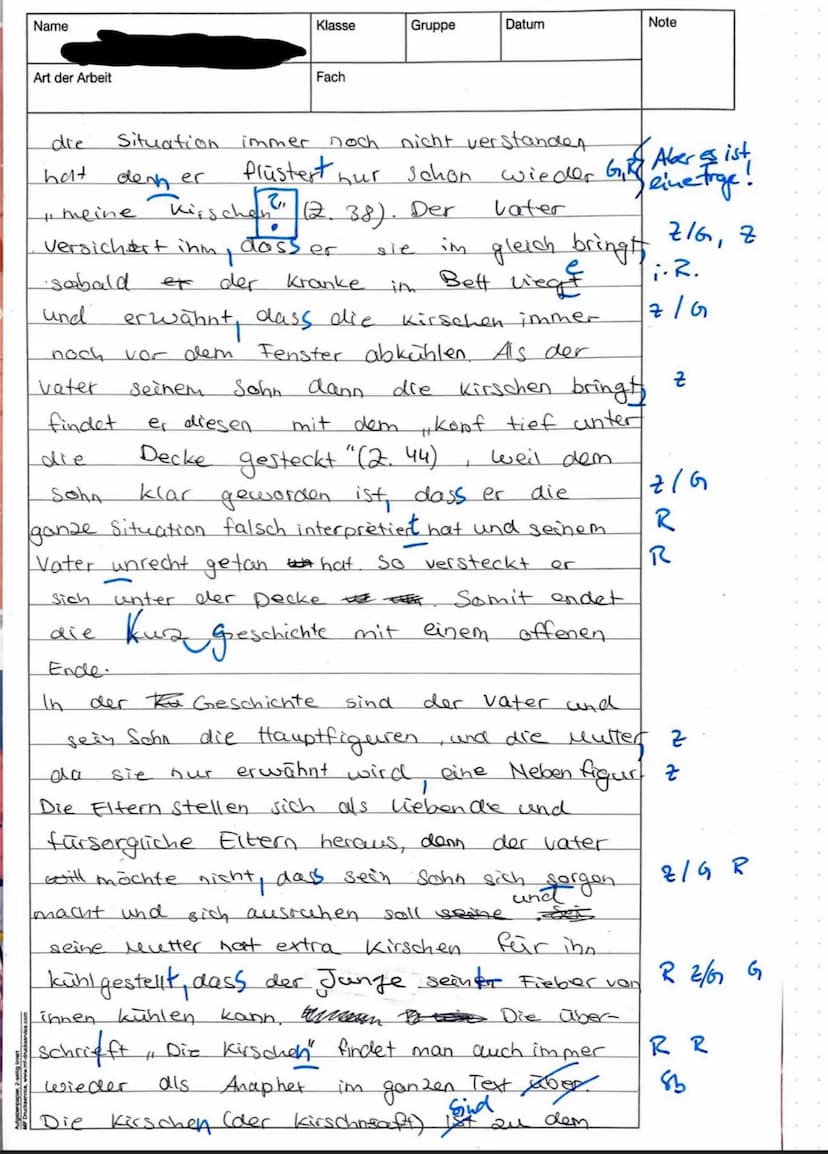 Name
Klasse
Gruppe
Datum
Note
Art der Arbeit
Fach
die Situation immer noch nicht verstanden
hat denn er flüstert nur schon wieder G, R Aber es ist
eine Frage!
„meine Kirschen?" (Z. 38). Der Vater
versichert ihm, dass er sie im gleich bringt, Z/G, Z
sobald er der Kranke im Bett liege i.R.
und erwähnt, dass die Kirschen immer Z/G
noch vor dem Fenster abkühlen. Als der
Vater seinem Sohn dann die Kirschen bringt, Z
findet er diesen mit dem „Kopf tief unter
die Decke gesteckt" (Z. 44), weil dem
Sohn klar geworden ist, dass er die Z/G
ganze Situation falsch interpretiert hat und seinem R
Vater unrecht getan hat. So versteckt er R
sich unter der Decke. Somit endet
die Kurzgeschichte mit einem offenen
Ende.
In der Geschichte sind der Vater und
sein Sohn die Hauptfiguren, und die Mutter, Z
da sie nur erwähnt wird, eine Nebenfigur. Z
Die Eltern stellen sich als liebende und
fürsorgliche Eltern heraus, denn der Vater
will möchte nicht, dass sein Sohn sich sorgen Z/G R
macht und sich ausruhen soll und
seine Mutter hat extra Kirschen für ihn
kühlgestellt, dass der Junge sein Fieber von R Z/G G
innen kühlen kann. Die Über-
schrift „Die Kirschen" findet man auch immer R R
wieder als Anapher im ganzen Text über. Sb
Die Kirschen (der Kirschnsaft) ist sind zu dem